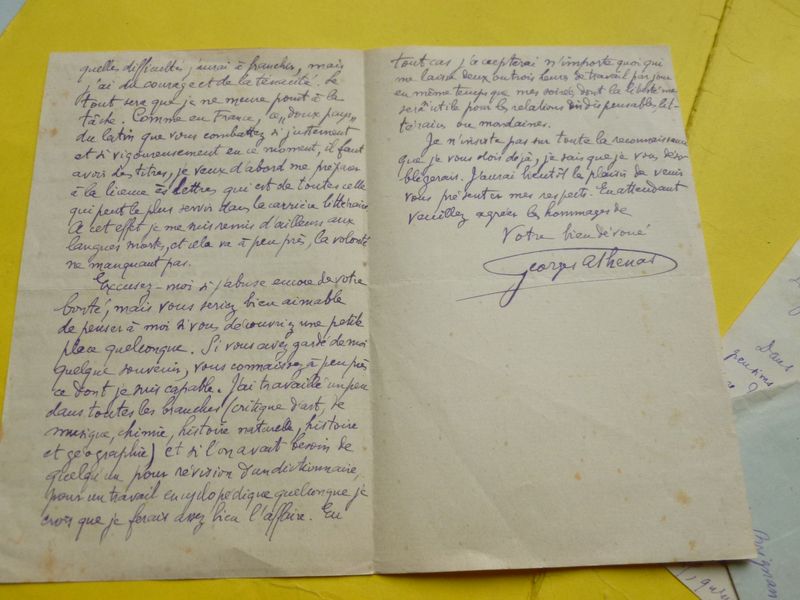 quelles difficultés j'aurai à franchir, mais
j'ai du courage et de la ténacité. Le
tout sera que je ne meure point à la
tâche. Comme en France, ce "doux pays"
du latin que vous combattez si justement
et si vigoureusement en ce moment, il faut
avoir des titres, je veux d'abord me préparer
à la licence ès lettres qui est de toutes celle
qui peut le plus servir dans la carrière littéraire.
A cet effet je me suis remis d'ailleurs aux
langues mortes, et cela va à peu près, la volonté
ne manquant pas.
Excusez-moi si j'abuse encore de votre
bonté, mais vous seriez bien aimable
de penser à moi si vous découvriez une petite
place quelconque. Si vous avez gardé de moi
quelque souvenir, vous connaissez à peu près
ce dont je suis capable. J'ai travaillé un peu
dans toutes les branches (critique d'art, de
musique, chimie, histoire naturelle, histoire
et géographie) et si l'on avait besoin de
quelqu'un pour révision d'un dictionnaire,
pour un travail encyclopédique quelconque je
crois que je ferais assez bien l'affaire. En
tout cas j'accepterai n'importe quoi qui
me laisse deux ou trois heures de travail par jour
en même temps que mes soirées dont la liberté me
sera utile pour les relations indispensables, lit-
téraires ou mondaines.
Je n'insiste pas sur toute la reconnaissance
que je vous dois déjà, je sais que je vous déso-
bligerais. J'aurai bientôt le plaisir de venir
vous présenter mes respects. En attendant
veuillez agréer les hommages de
Votre bien dévoué
Georges Athenas
Dans